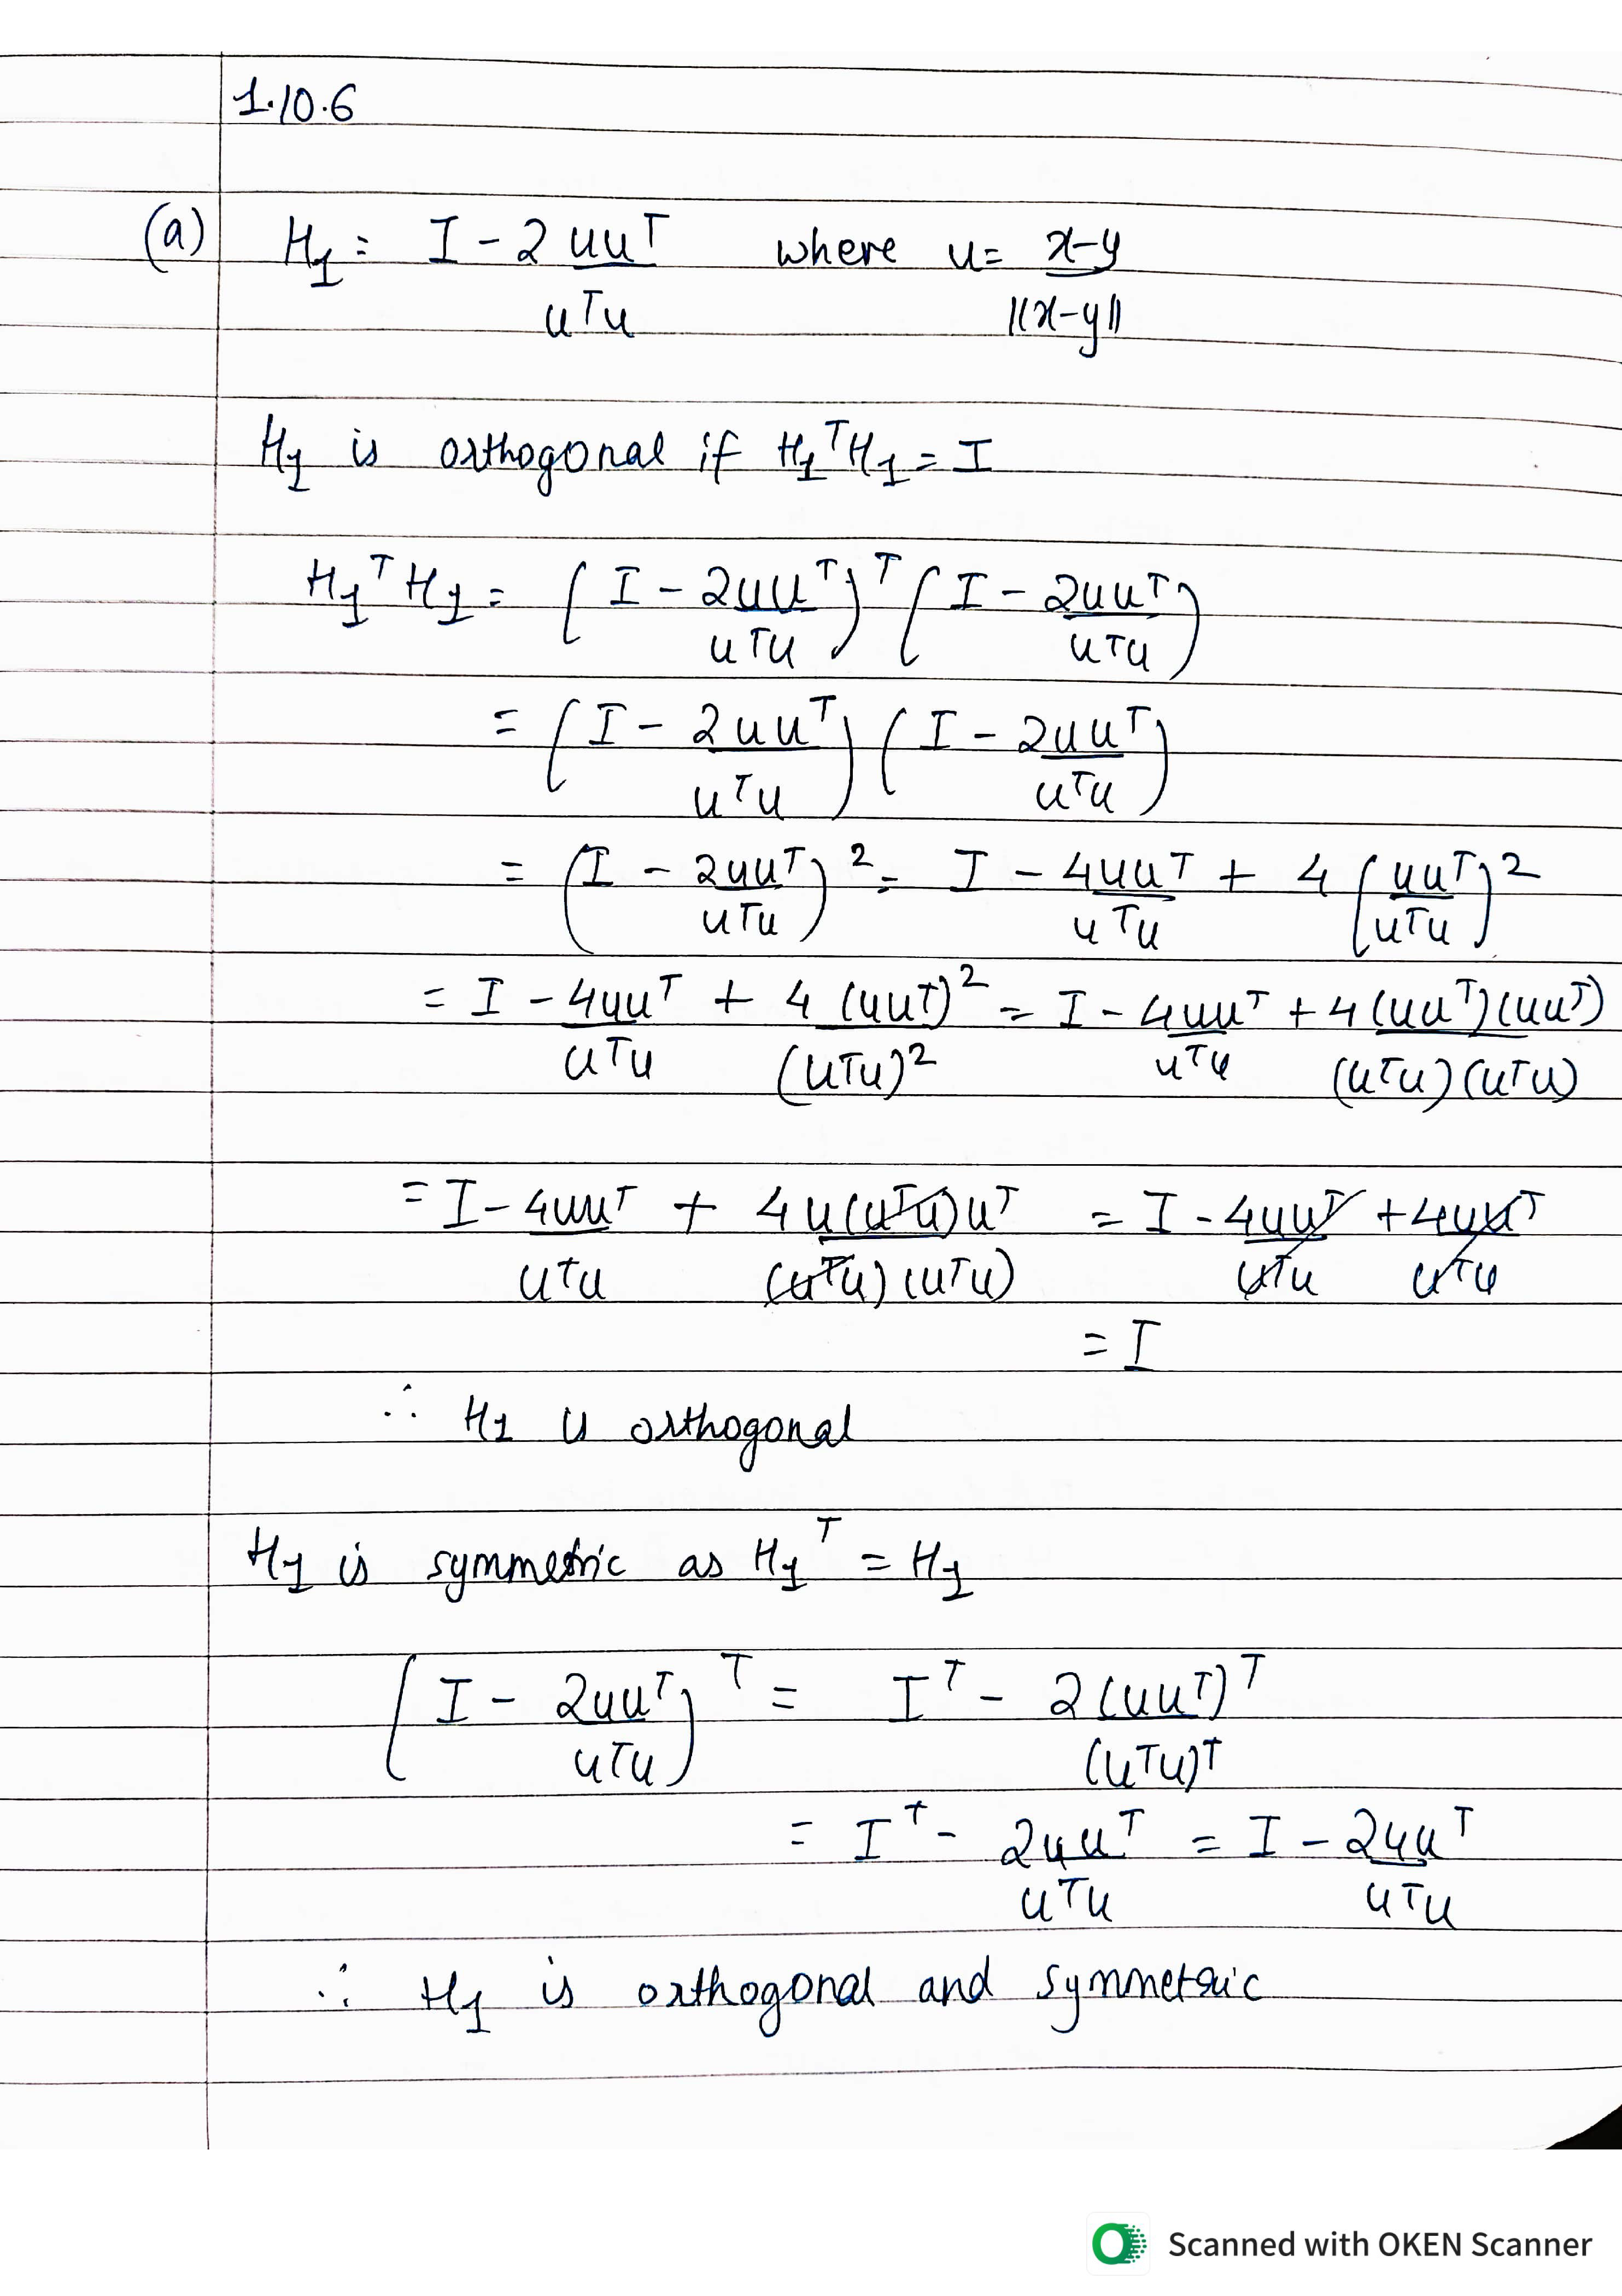 1.10.6
(a) H₁ = I - 2 uuᵀ/uᵀu where u = x-y/||x-y||
H₁ is orthogonal if H₁ᵀH₁ = I
H₁ᵀH₁ = (I - 2uuᵀ/uᵀu)ᵀ (I - 2uuᵀ/uᵀu)
= (I - 2uuᵀ/uᵀu) (I - 2uuᵀ/uᵀu)
= (I - 2uuᵀ/uᵀu)² = I - 4uuᵀ/uᵀu + 4 (uuᵀ/uᵀu)²
= I - 4uuᵀ/uᵀu + 4 (uuᵀ)²/(uᵀu)² = I - 4uuᵀ/uᵀu + 4(uuᵀ)(uuᵀ)/(uᵀu)(uᵀu)
= I - 4uuᵀ/uᵀu + 4u(uᵀu)uᵀ/(uᵀu)(uᵀu) = I - 4uuᵀ/uᵀu + 4uuᵀ/uᵀu
= I
∴ H₁ is orthogonal
H₁ is symmetric as H₁ᵀ = H₁
(I - 2uuᵀ/uᵀu)ᵀ = Iᵀ - 2(uuᵀ)ᵀ/(uᵀu)ᵀ
= Iᵀ - 2uuᵀ/uᵀu = I - 2uuᵀ/uᵀu
∴ H₁ is orthogonal and symmetric
Scanned with OKEN Scanner